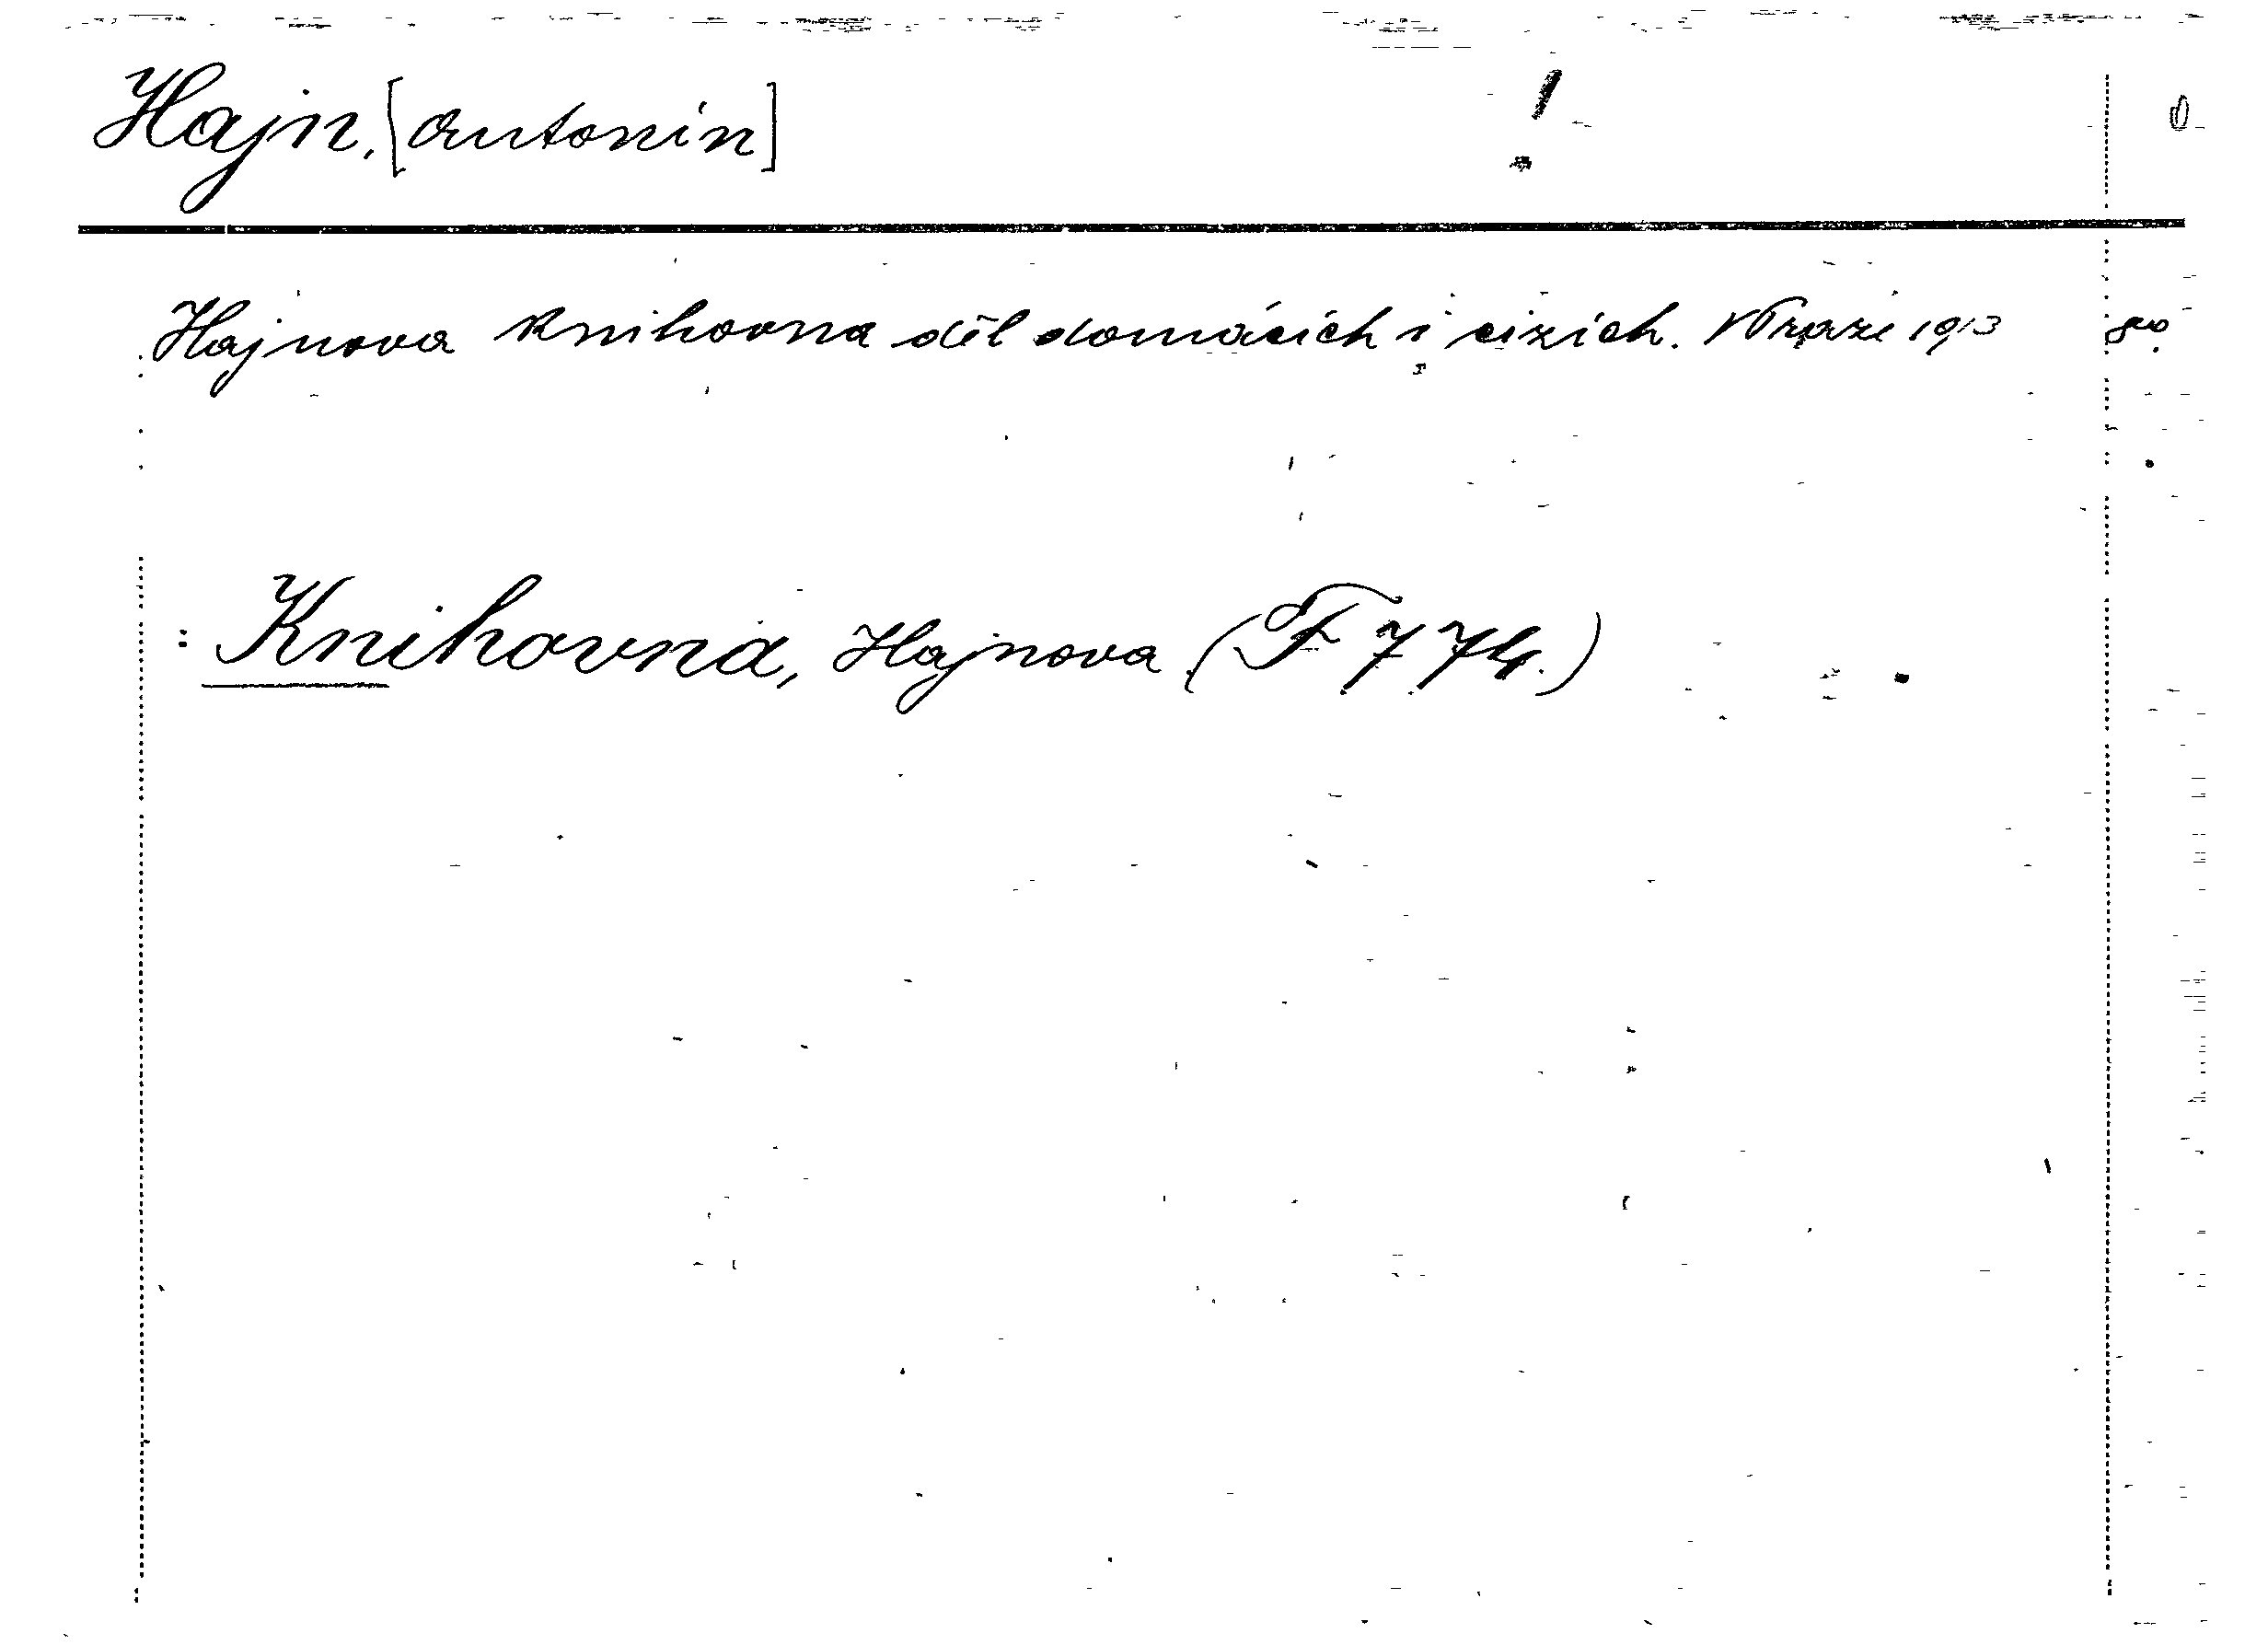 Hajn, [Antonín] ! 0
Hajnova knihovna děl domácích i cizích. V Praze 1913 8°.
: Knihovna, Hajnova (F 774.)